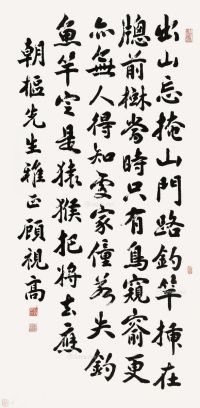 出山忘掩山門路釣竿插在
牕前樹當時只有鳥窺窬更
亦無人得知處家僮若失釣
魚竿定是猿猴把將去應
朝樞先生雅正顧視高